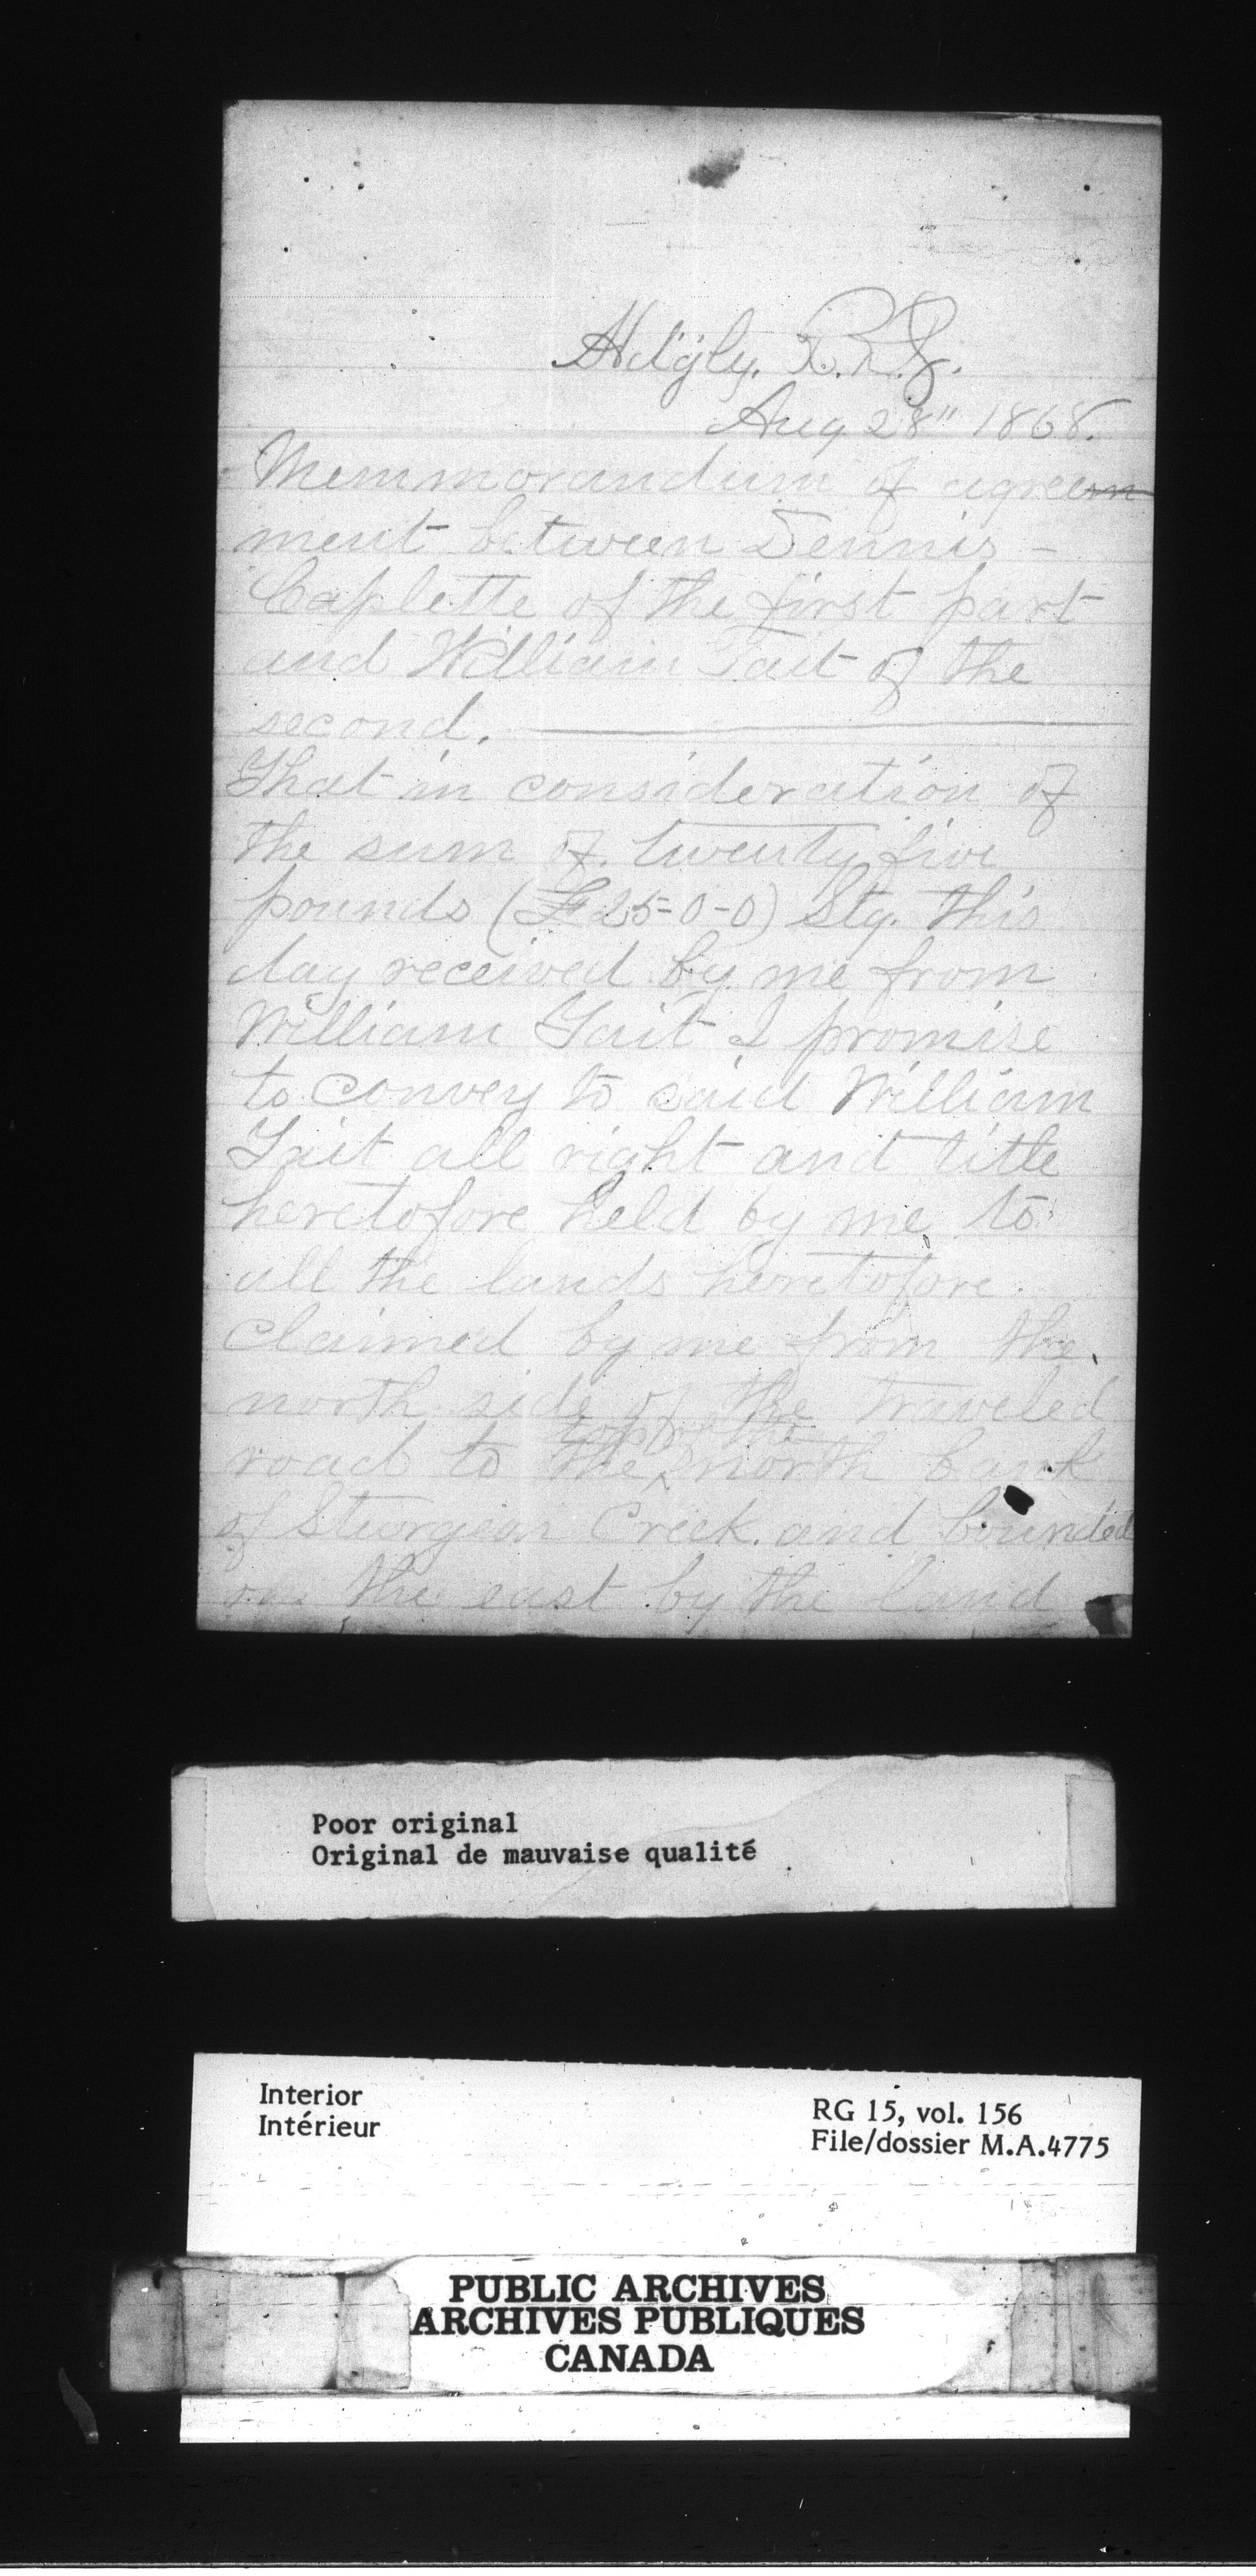 Hdgly. R.R.S.
Aug 28" 1868.
Memmorandum of agreem
ment between Dennis -
Caplette of the first part
and William Tait of the
second.
That in consideration of
the sum of twenty five
pounds (£25-0-0) Stg. this
day received by me from
William Tait I promise
to convey to said William
Tait all right and title
heretofore held by me to
all the lands heretofore
claimed by me from the
north side of the traveled
top of the
road to the ^ north bank
of Sturgeon Creek. and bounded
on the east by the land
Poor original
Original de mauvaise qualité
Interior
Intérieur
RG 15, vol. 156
File/dossier M.A.4775
PUBLIC ARCHIVES
ARCHIVES PUBLIQUES
CANADA